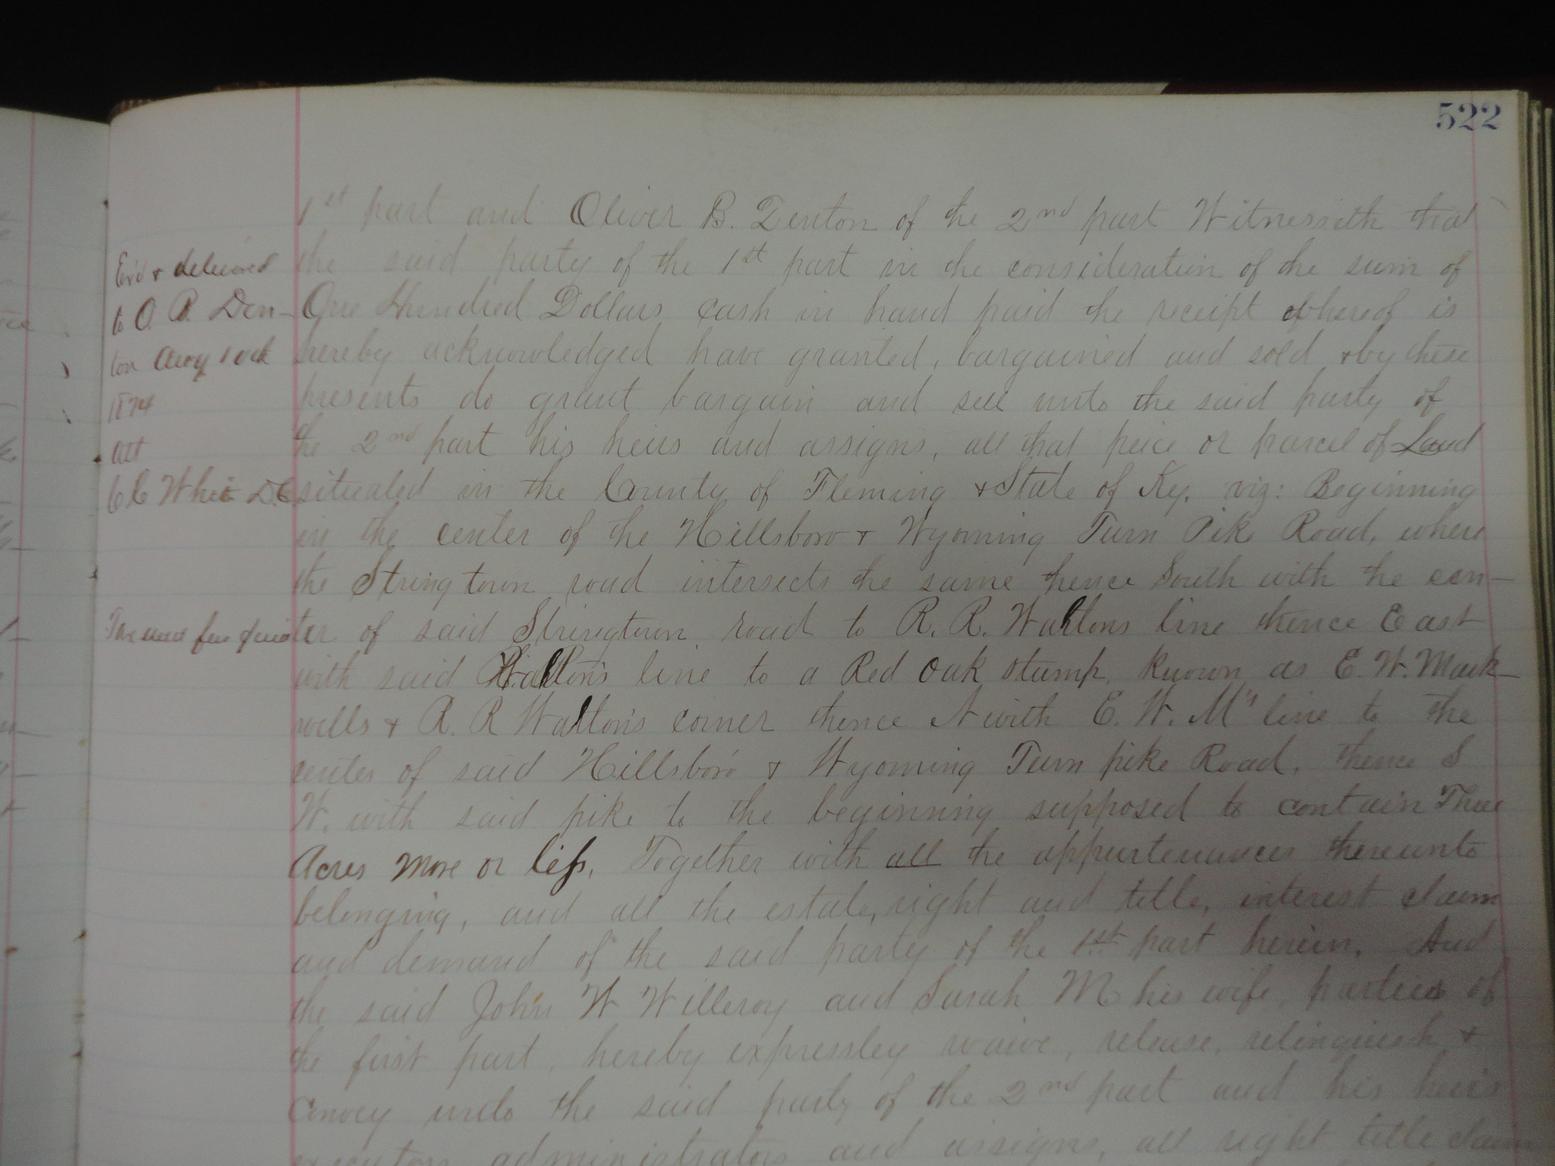 522
1st part and Oliver B. Denton of the 2nd part Witnesseth that
the said party of the 1st part in the consideration of the sum of
One Hundred Dollars cash in hand paid the receipt whereof is
hereby acknowledged have granted, bargained and sold & by these
presents do grant bargain and sell unto the said party of
the 2nd part his heirs and assigns, all that peice or parcel of Land
situated in the County of Fleming & State of Ky. viz: Beginning
in the center of the Hillsboro & Wyoming Turn Pike Road, where
the Stringtown road intersects the same thence South with the cen-
ter of said Stringtown road to R. R. Waltons line thence East
with said Walton's line to a Red Oak stump, known as E. W. Mark-
wells & R. R Walton's corner thence N with E. W. M's line to the
center of said Hillsboro & Wyoming Turn pike Road, thence S
W. with said pike to the beginning supposed to contain Three
Acres more or less, Together with all the appurtenances thereunto
belonging, and all the estate, right and title, interest claim
and demand of the said party of the 1st part herein, And
the said John W Willeroy and Sarah M his wife, parties of
the first part, hereby expressley waive, release, relinquish &
convey unto the said party of the 2nd part and his heirs
executors administrators and assigns, all right title claim
Exd & delivered
to O. B. Den-
ton Aug 10th
1874
Att
C C White D.C
Tax and fee